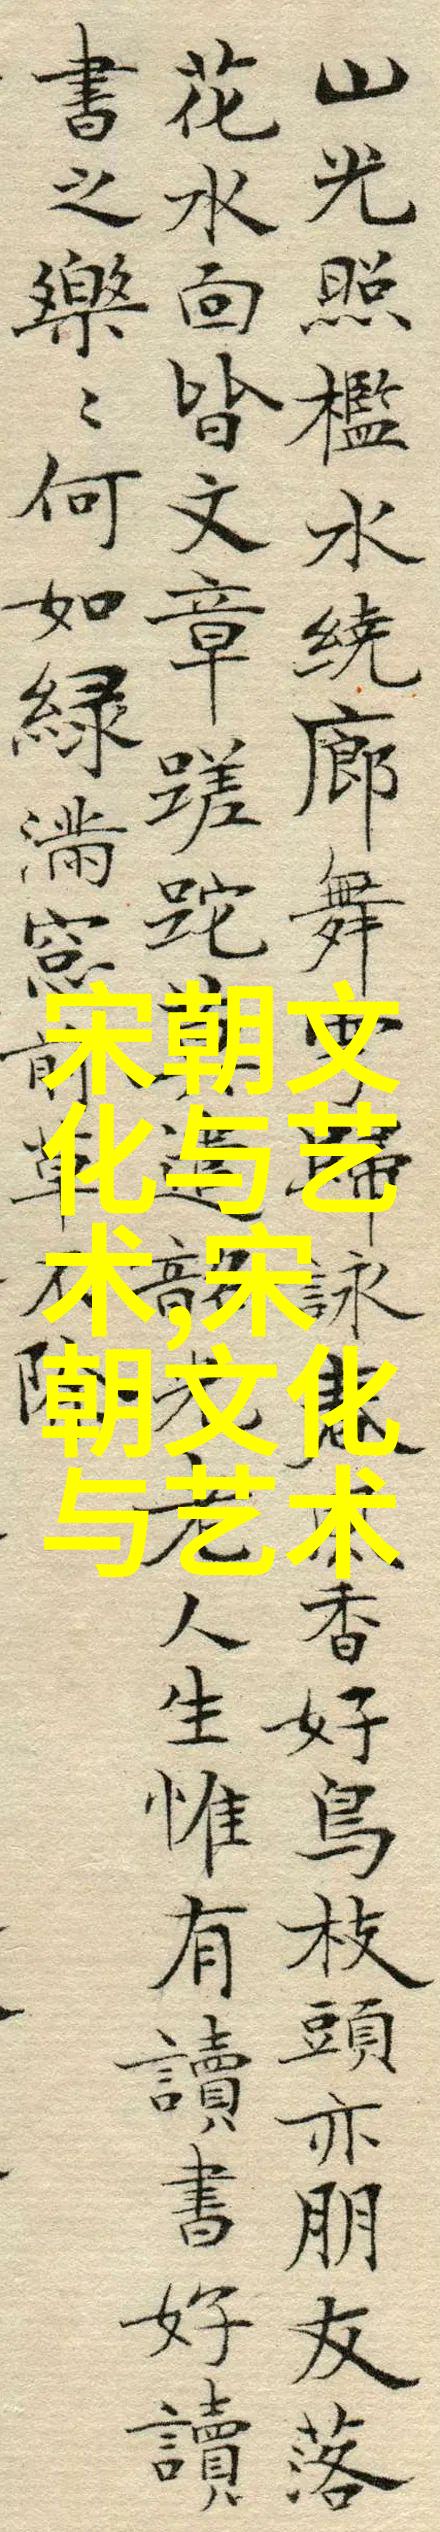 山光照檻水繞廊舞雩歸詠春風香好鳥枝頭亦朋友落
花水面皆文章蹉跎莫遣韶光老人生惟有讀書好讀
書之樂〻何如綠滿窓前草不除
宋朝文
化与艺
术,宋
朝文化
与艺术